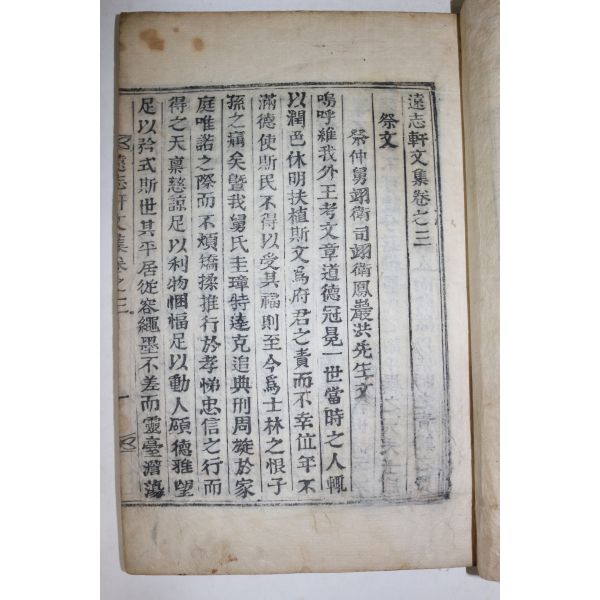 遠志軒文集卷之三
祭文
祭仲舅翊衛司翊衛鳳巖洪先生文
嗚呼維我外王考文章道德冠冕一世當時之人輒
以潤色休明扶植斯文爲府君之責而不幸位年不
滿德使斯民不得以受其福則至今爲士林之恨子
孫之痛矣曁我舅氏圭璋特達克追典刑周旋於家
庭唯諾之際而不煩矯揉推行於孝悌忠信之行而
得之天稟慈諒足以利物悃愊足以動人碩德雅望
足以矜式斯世其平居從容繩墨不差而靈臺濳蕩
遠志軒文集卷之三 一